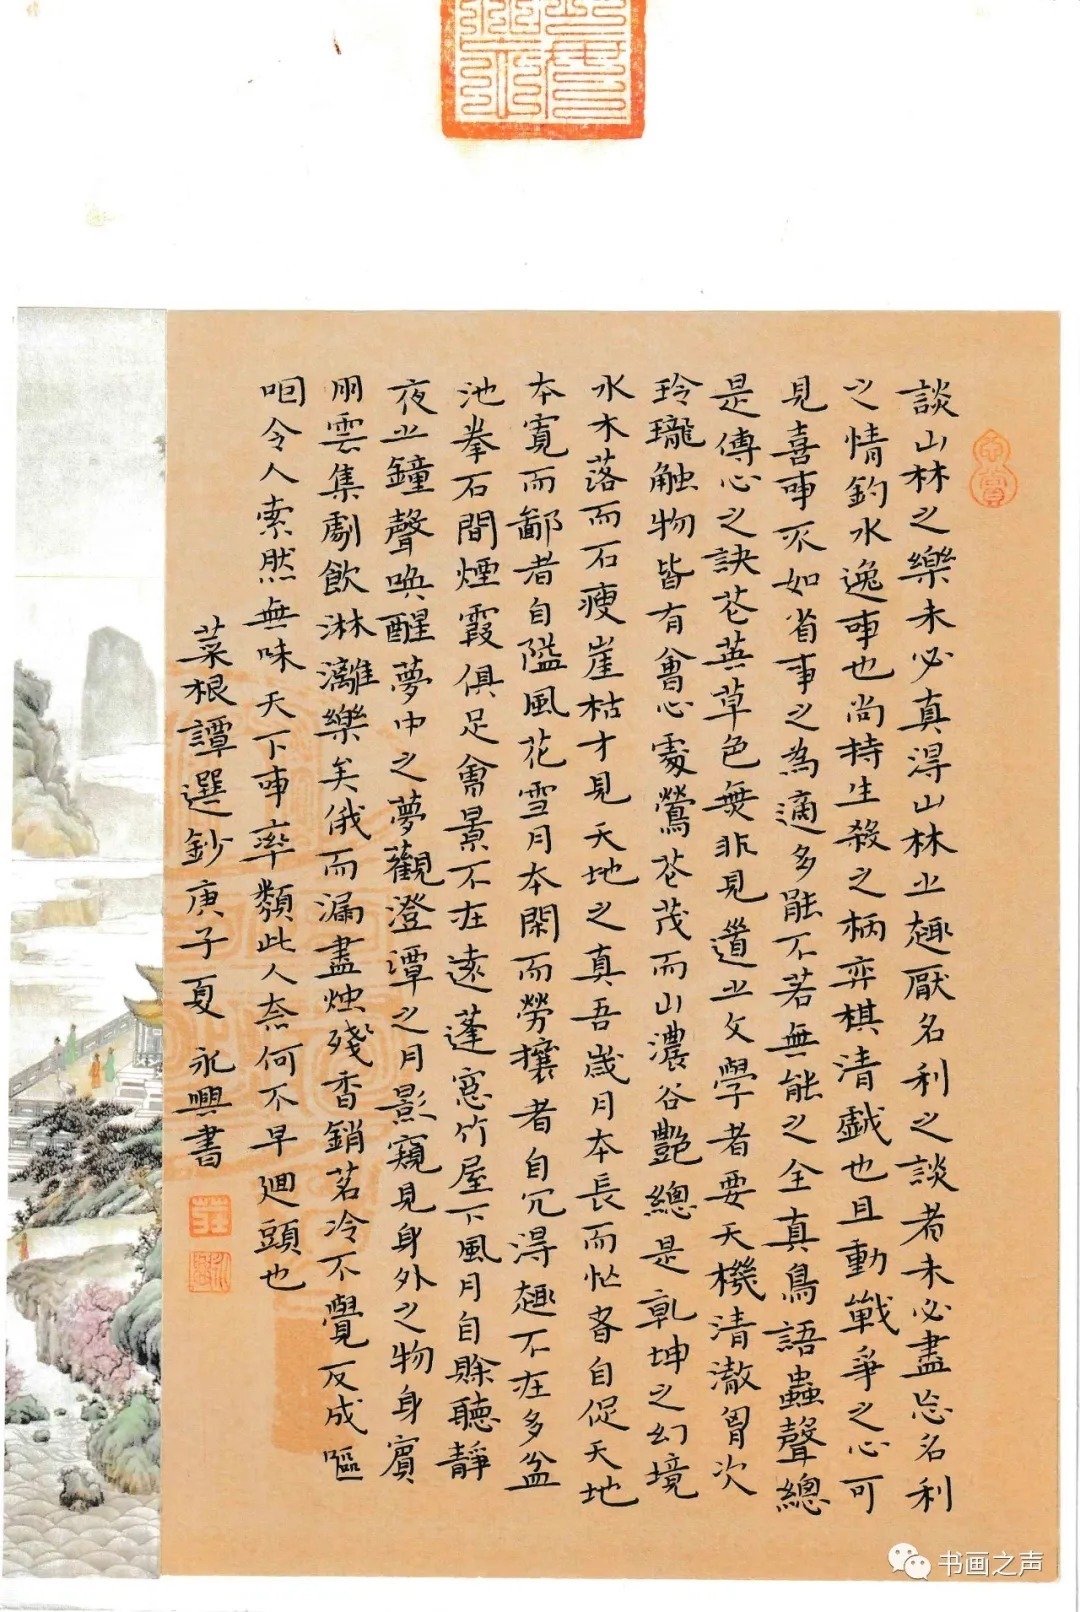 談山林之樂未必真得山林之趣厭名利之談者未必盡忘名利
之情釣水逸事也尚持生殺之柄弈棋清戲也且動戰爭之心可
見喜事不如省事之為適多能不若無能之全真鳥語蟲聲總
是傳心之訣花英草色無非見道之文學者要天機清澈胷次
玲瓏触物皆有會心處鶯花茂而山濃谷艷總是乾坤之幻境
水木落而石瘦崖枯才見天地之真吾歲月本長而忙者自促天地
本寬而鄙者自隘風花雪月本閑而勞攘者自冗得趣不在多盆
池拳石間煙霞俱足會景不在遠蓬窓竹屋下風月自賒聽靜
夜之鐘聲喚醒夢中之夢觀澄潭之月影窺見身外之物身賓
朋雲集劇飲淋灕樂矣俄而漏盡烛殘香銷茗冷不覺反成嘔
咽令人索然無味天下事率類此人奈何不早迴頭也
菜根譚選鈔庚子夏 永興書
书画之声